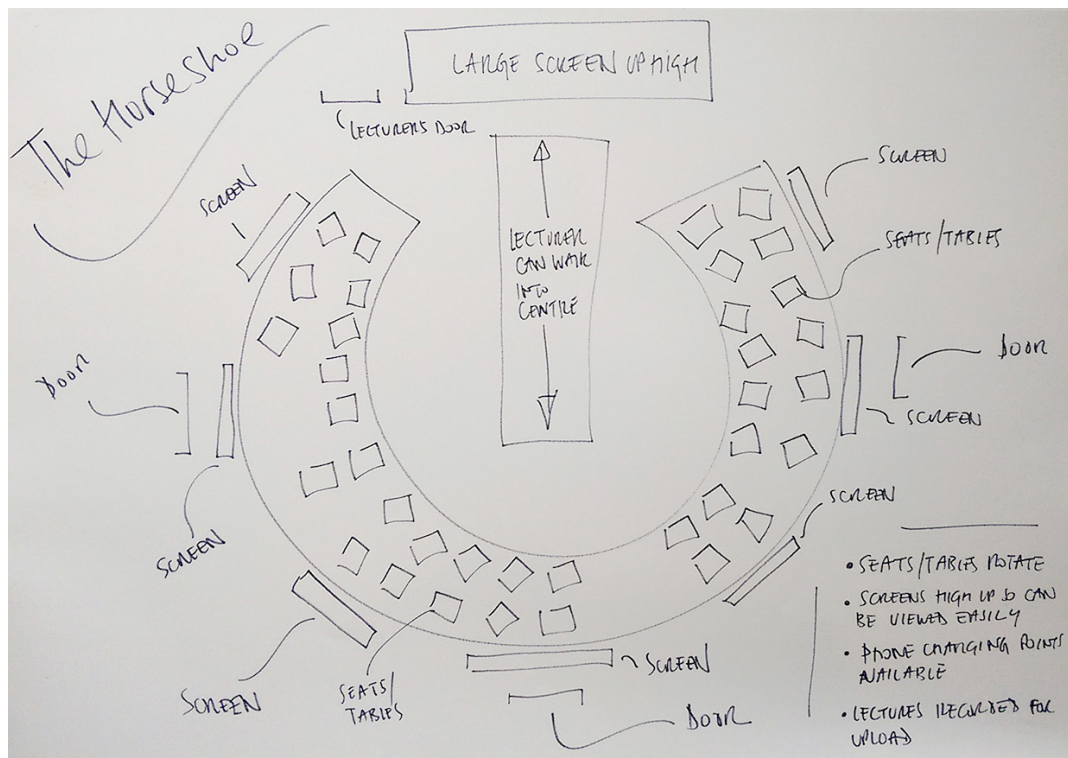 The Horse Shoe
LARGE SCREEN UP HIGH
LECTURERS DOOR
SCREEN
SCREEN
SEATS/TABLES
LECTURER
CAN WALK
INTO
CENTRE
DOOR
DOOR
SCREEN
SCREEN
SCREEN
SCREEN
SEATS/
TABLES
SCREEN
DOOR
• SEATS/TABLES ROTATE
• SCREENS HIGH UP SO CAN
BE VIEWED EASILY
• PHONE CHARGING POINTS
AVAILABLE
• LECTURES RECORDED FOR
UPLOAD